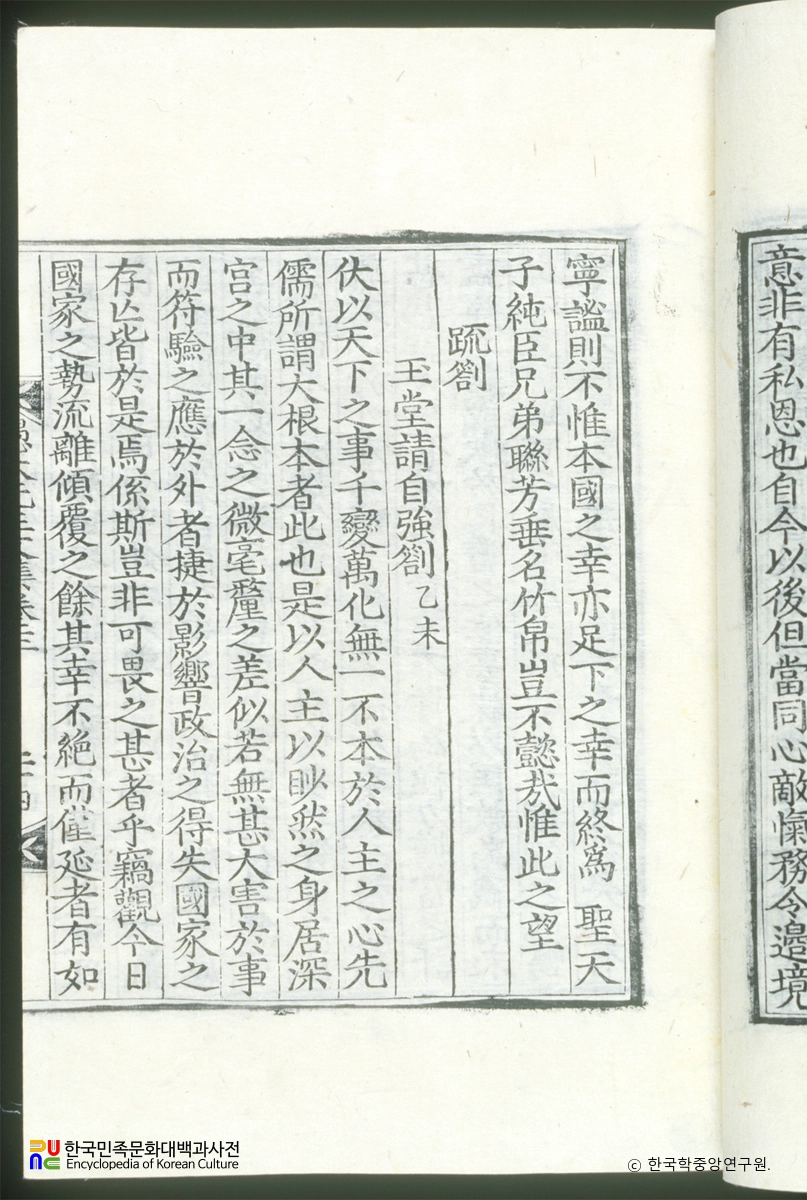 意非有私恩也自今以後但當同心敵愾務令邊境
寧謐則不惟本國之幸亦足下之幸而終爲 聖天
子純臣兄弟聯芳垂名竹帛豈不懿哉惟此之望
疏劄
玉堂請自強劄 乙未
伏以天下之事千變萬化無一不本於人主之心先
儒所謂大根本者此也是以人主以眇然之身居深
宮之中其一念之微毫釐之差似若無甚大害於事
而符驗之應於外者捷於影響政治之得失國家之
存亾皆於是焉係斯豈非可畏之甚者乎竊觀今日
國家之勢流離傾覆之餘其幸不絶而僅延者有如
한국민족문화대백과사전
Encyclopedia of Korean Culture
© 한국학중앙연구원.